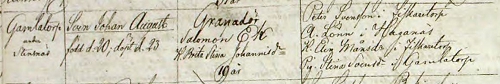 Gamlatorp
under
Stensnäs
Sven Johan August
född d. 20, döpt d. 23
Granadör
Salomon Ek
H. Brita Stina Johannisd:r
19 år
Peter Svensson i Fiskaretorp
A. Lönn i Haganäs
H. Elin Månsd:r i Fiskaretorp
Pig. Stina Svensd:r i Gamlatorp